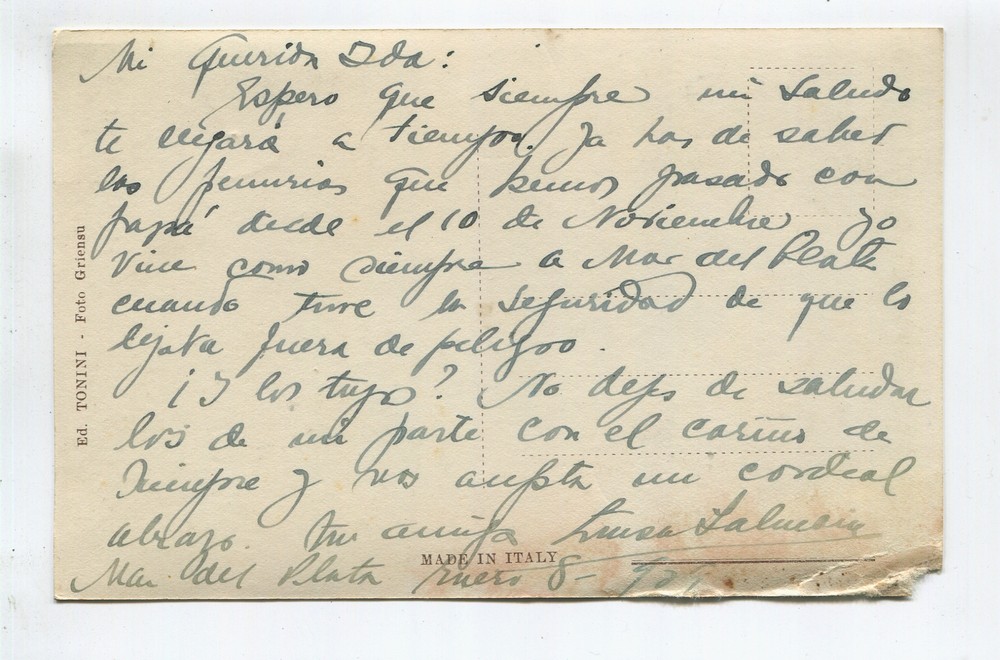 Mi Querida Ida:
Espero que siempre mi saludo
te llegará a tiempo. Ya has de saber
las penurias que hemos pasado con
papá desde el 10 de Noviembre yo
vine como siempre a Mar del Plata
cuando tuve la seguridad de que lo
dejaba fuera de peligro.
¿Y los tuyos? No dejes de saludar
los de mi parte con el cariño de
siempre y vos acepta un cordial
abrazo. tu amiga Luisa
Mar del Plata Enero 8-
Ed. TONINI - Foto Griensu
MADE IN ITALY